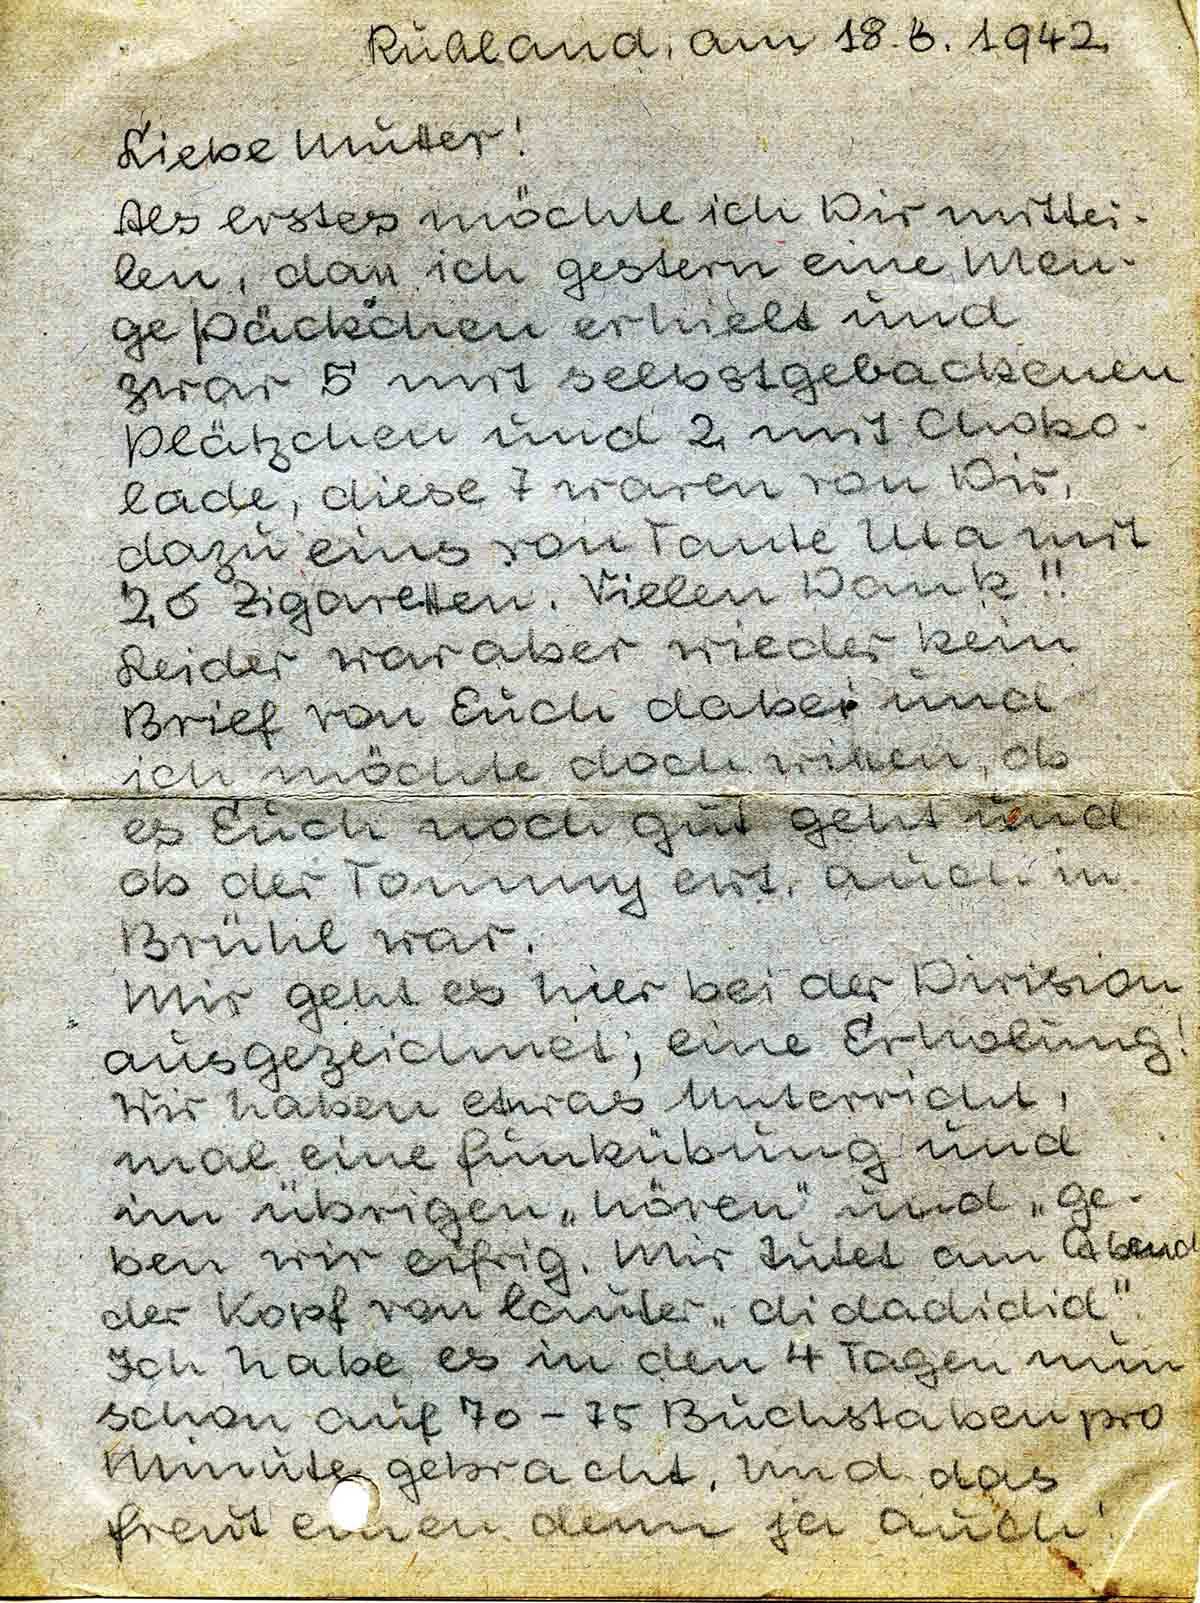 Rußland, am 18.6.1942
Liebe Mutter!
Als erstes möchte ich Dir mittei-
len, daß ich gestern eine Men-
ge Päckchen erhielt und
zwar 5 mit selbstgebackenen
Plätzchen und 2 mit Choko-
lade, diese 7 waren von Dir,
dazu eins von Tante Uta mit
26 Zigaretten. Vielen Dank!!
Leider war aber wieder kein
Brief von Euch dabei und
ich möchte doch wißen, ob
es Euch noch gut geht und
ob der Tommy evt. auch in
Brühl war.
Mir geht es hier bei der Division
ausgezeichnet; eine Erholung!
Wir haben etwas Unterricht,
mal eine Funkübung und
im übrigen „hören" und „ge-
ben wir eifrig. Mir tutet am Abend
der Kopf von lauter „didadidid".
Ich habe es in den 4 Tagen nun
schon auf 70-75 Buchstaben pro
Minute gebracht. Und das
freut einen denn ja auch!